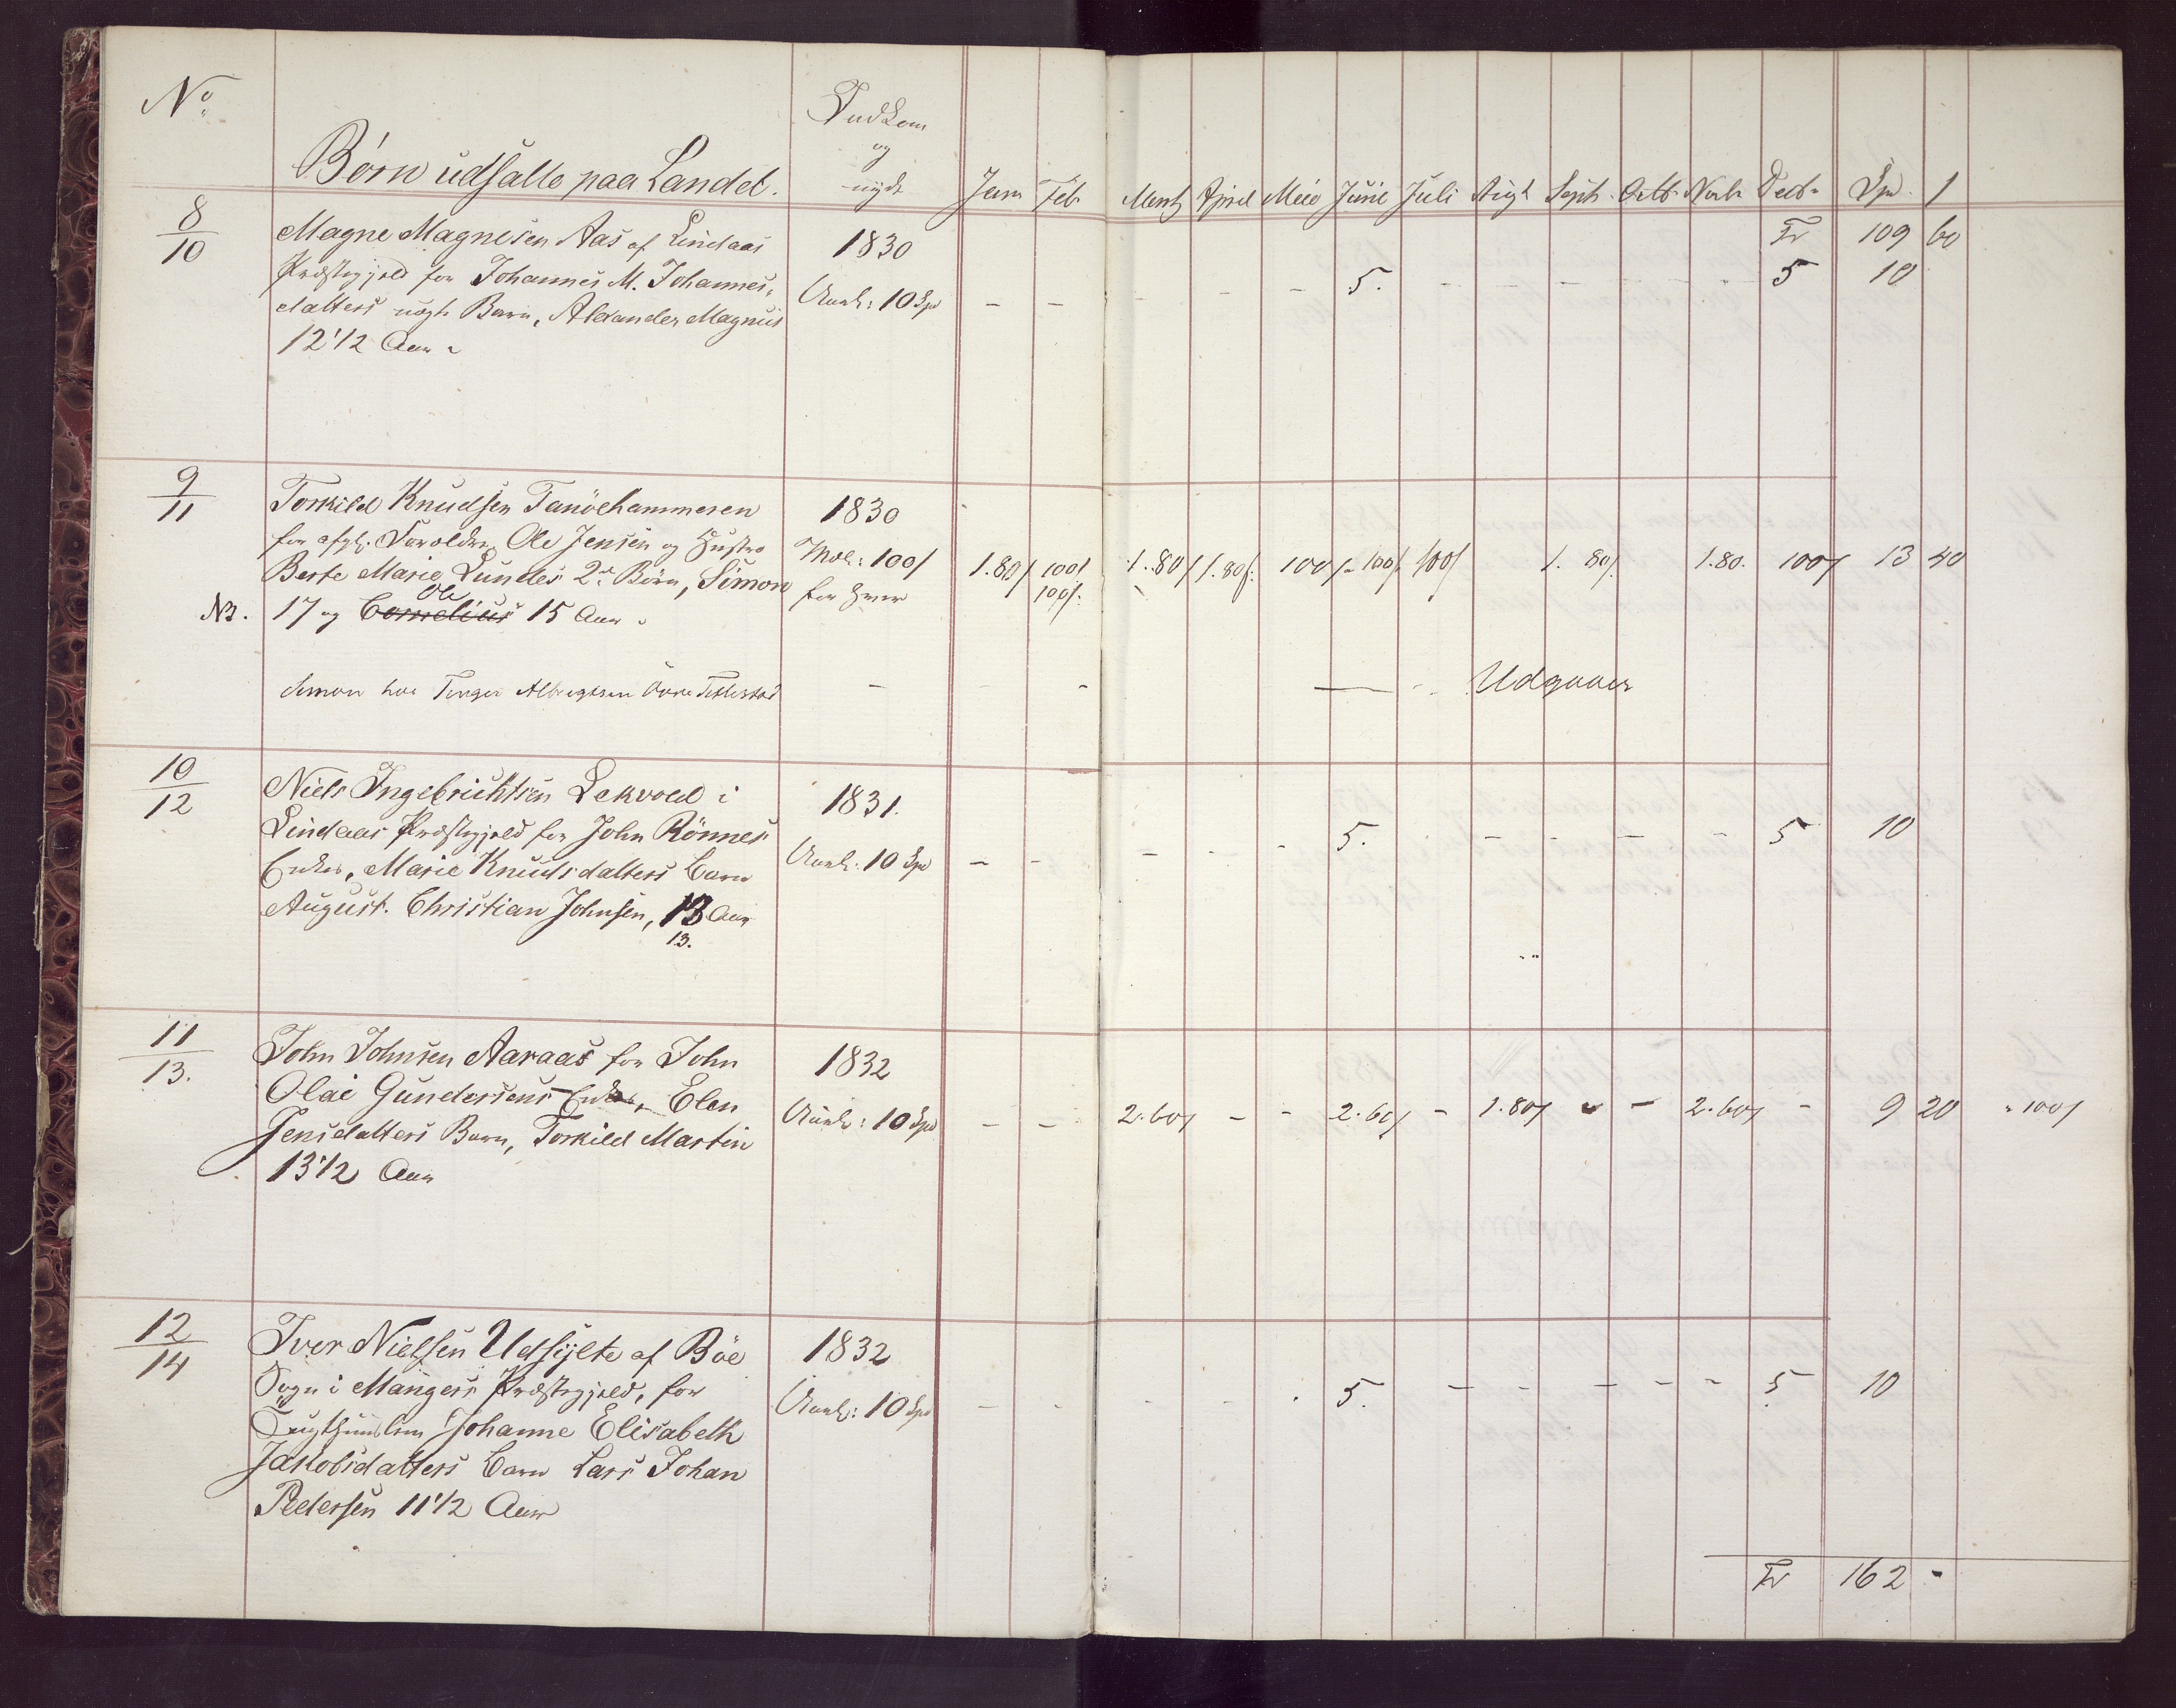 No.
Børn udsatte paa Landet.
Indkom
og
nyde
Janr Febr Martz April Maie Junie Juli Augt Septr Octbr Novbr Decbr Spd. ſ
8/10
Magne Magnesen Aas af Lindaas
Præstegjeld for Johannes M. Johannes-
datters uægte Barn, Alexander Magnus
12 1/2 Aar
1830
Aarl: 10 Spd
- - - - - 5. - - - - - 5 10
Tr 109 60
9/11
Torkild Knudsen Tanöehammeren
for afgl. Forældre, Ole Jensen og Hustro
Berte Marie Lundes 2de Börn, Simon
NB. 17 og Cornelius Ole 15 Aar
1830
Mdl: 100ſ
for hver
1.80ſ 100ſ 100ſ. 1.80ſ 1.80ſ. 100ſ 100ſ 100ſ 1. 80ſ. 1.80. 100ſ 13 40
Simon hos Albregtsen
- - - Udgaaer
10/12
Niels Ingebrichtsen Lekvold i
Lindaas Præstegjeld for John Rönnes
Enkes, Marie Knudsdatters Barn
August. Christian Johnsen, 13 Aar
13.
1831.
Aarl. 10 Spd
- - - - - 5. - - - - 5 10
11/13.
John Johnsen Aaraas for John
Olai Gundersens Enkes, Elen
Jensdatters Barn, Torkild Martin
13 1/2 Aar
1832
Aarl: 10 Spd
- - 2.60ſ - - 2.60ſ - 1.80ſ - - 2.60ſ - 9 20 100ſ
12/14
Iver Nielsen Udsylte af Böe
Sogn i Mangers Præstegjeld, for
Johanne Elisabeth
Jakobsdatters Barn Lars Johan
Pedersen 11 1/2 Aar
1832
Aarl: 10 Spd
- - - - 5. - - - - - 5 10
Tr 162 -